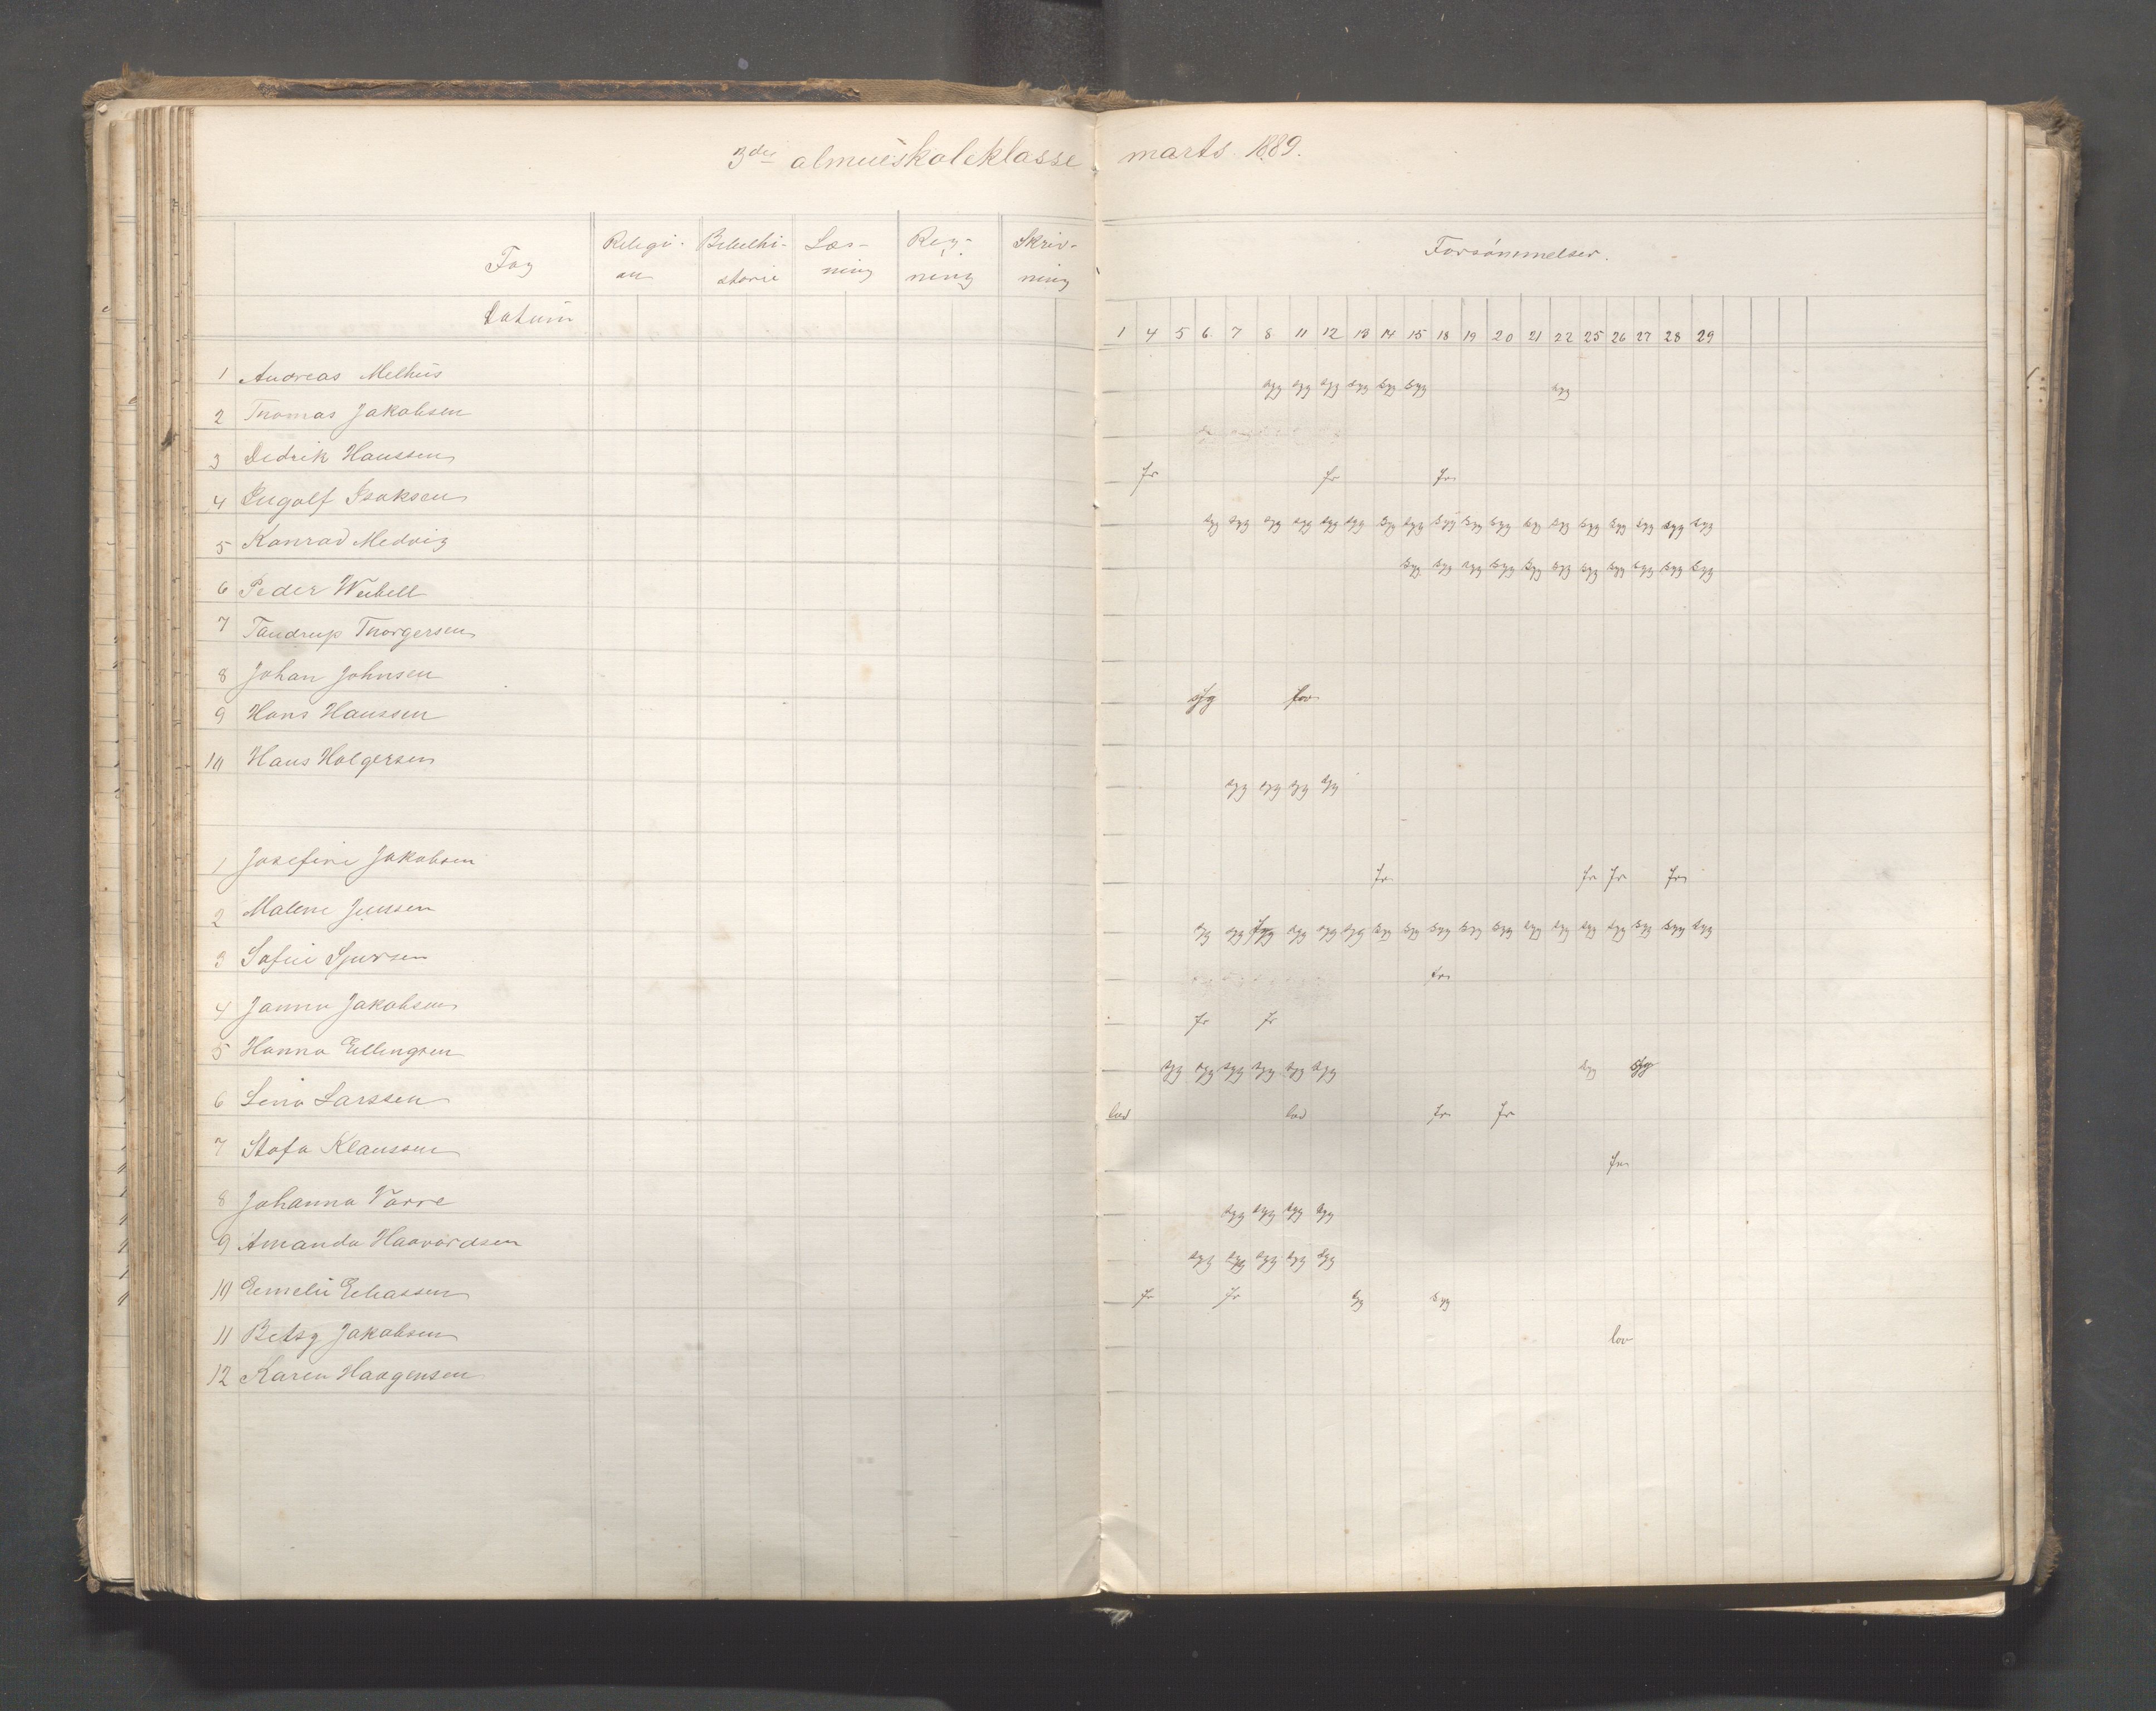 3die almueskoleklasse marts 1889.
Fag Religi- Bibelhi- Læs- Reg- Skriv- Forsömmelser.
on storie ning ning ning
Datum 1 4 5 6 7 8 11 12 13 14 15 18 19 20 21 22 25 26 27 28 29
1 Andreas Melhus syg syg syg syg syg syg syg
2 Thomas Jakobsen
3 Didrik Hanssen fr fr fr
4 Ingolf Isaksen syg syg syg syg syg syg syg syg syg syg syg syg syg syg syg syg syg syg
5 Konrad Medvig syg syg syg syg syg syg syg syg syg syg syg
6 Peder Weibell
7 Tandrup Thorgersen
8 Johan Johnsen syg lov
9 Hans Hanssen
10 Hans Holgersen syg syg syg syg
1 Josefine Jakobsen fr fr fr fr
2 Malene Jenssen syg syg syg syg syg syg syg syg syg syg syg syg syg syg syg syg syg syg
3 Sofie Sjursen fr
4 Janna Jakobsen fr fr
5 Hanna Ellingsen syg syg syg syg syg syg syg syg
6 Lina Larssen lov lov fr fr
7 Stafa Klaussen fr
8 Johanna Varre syg syg syg syg
9 Amanda Haavardsen syg syg syg syg syg
10 Emelie Eliassen fr fr syg syg
11 Betsy Jakobsen lov
12 Karen Haagensen